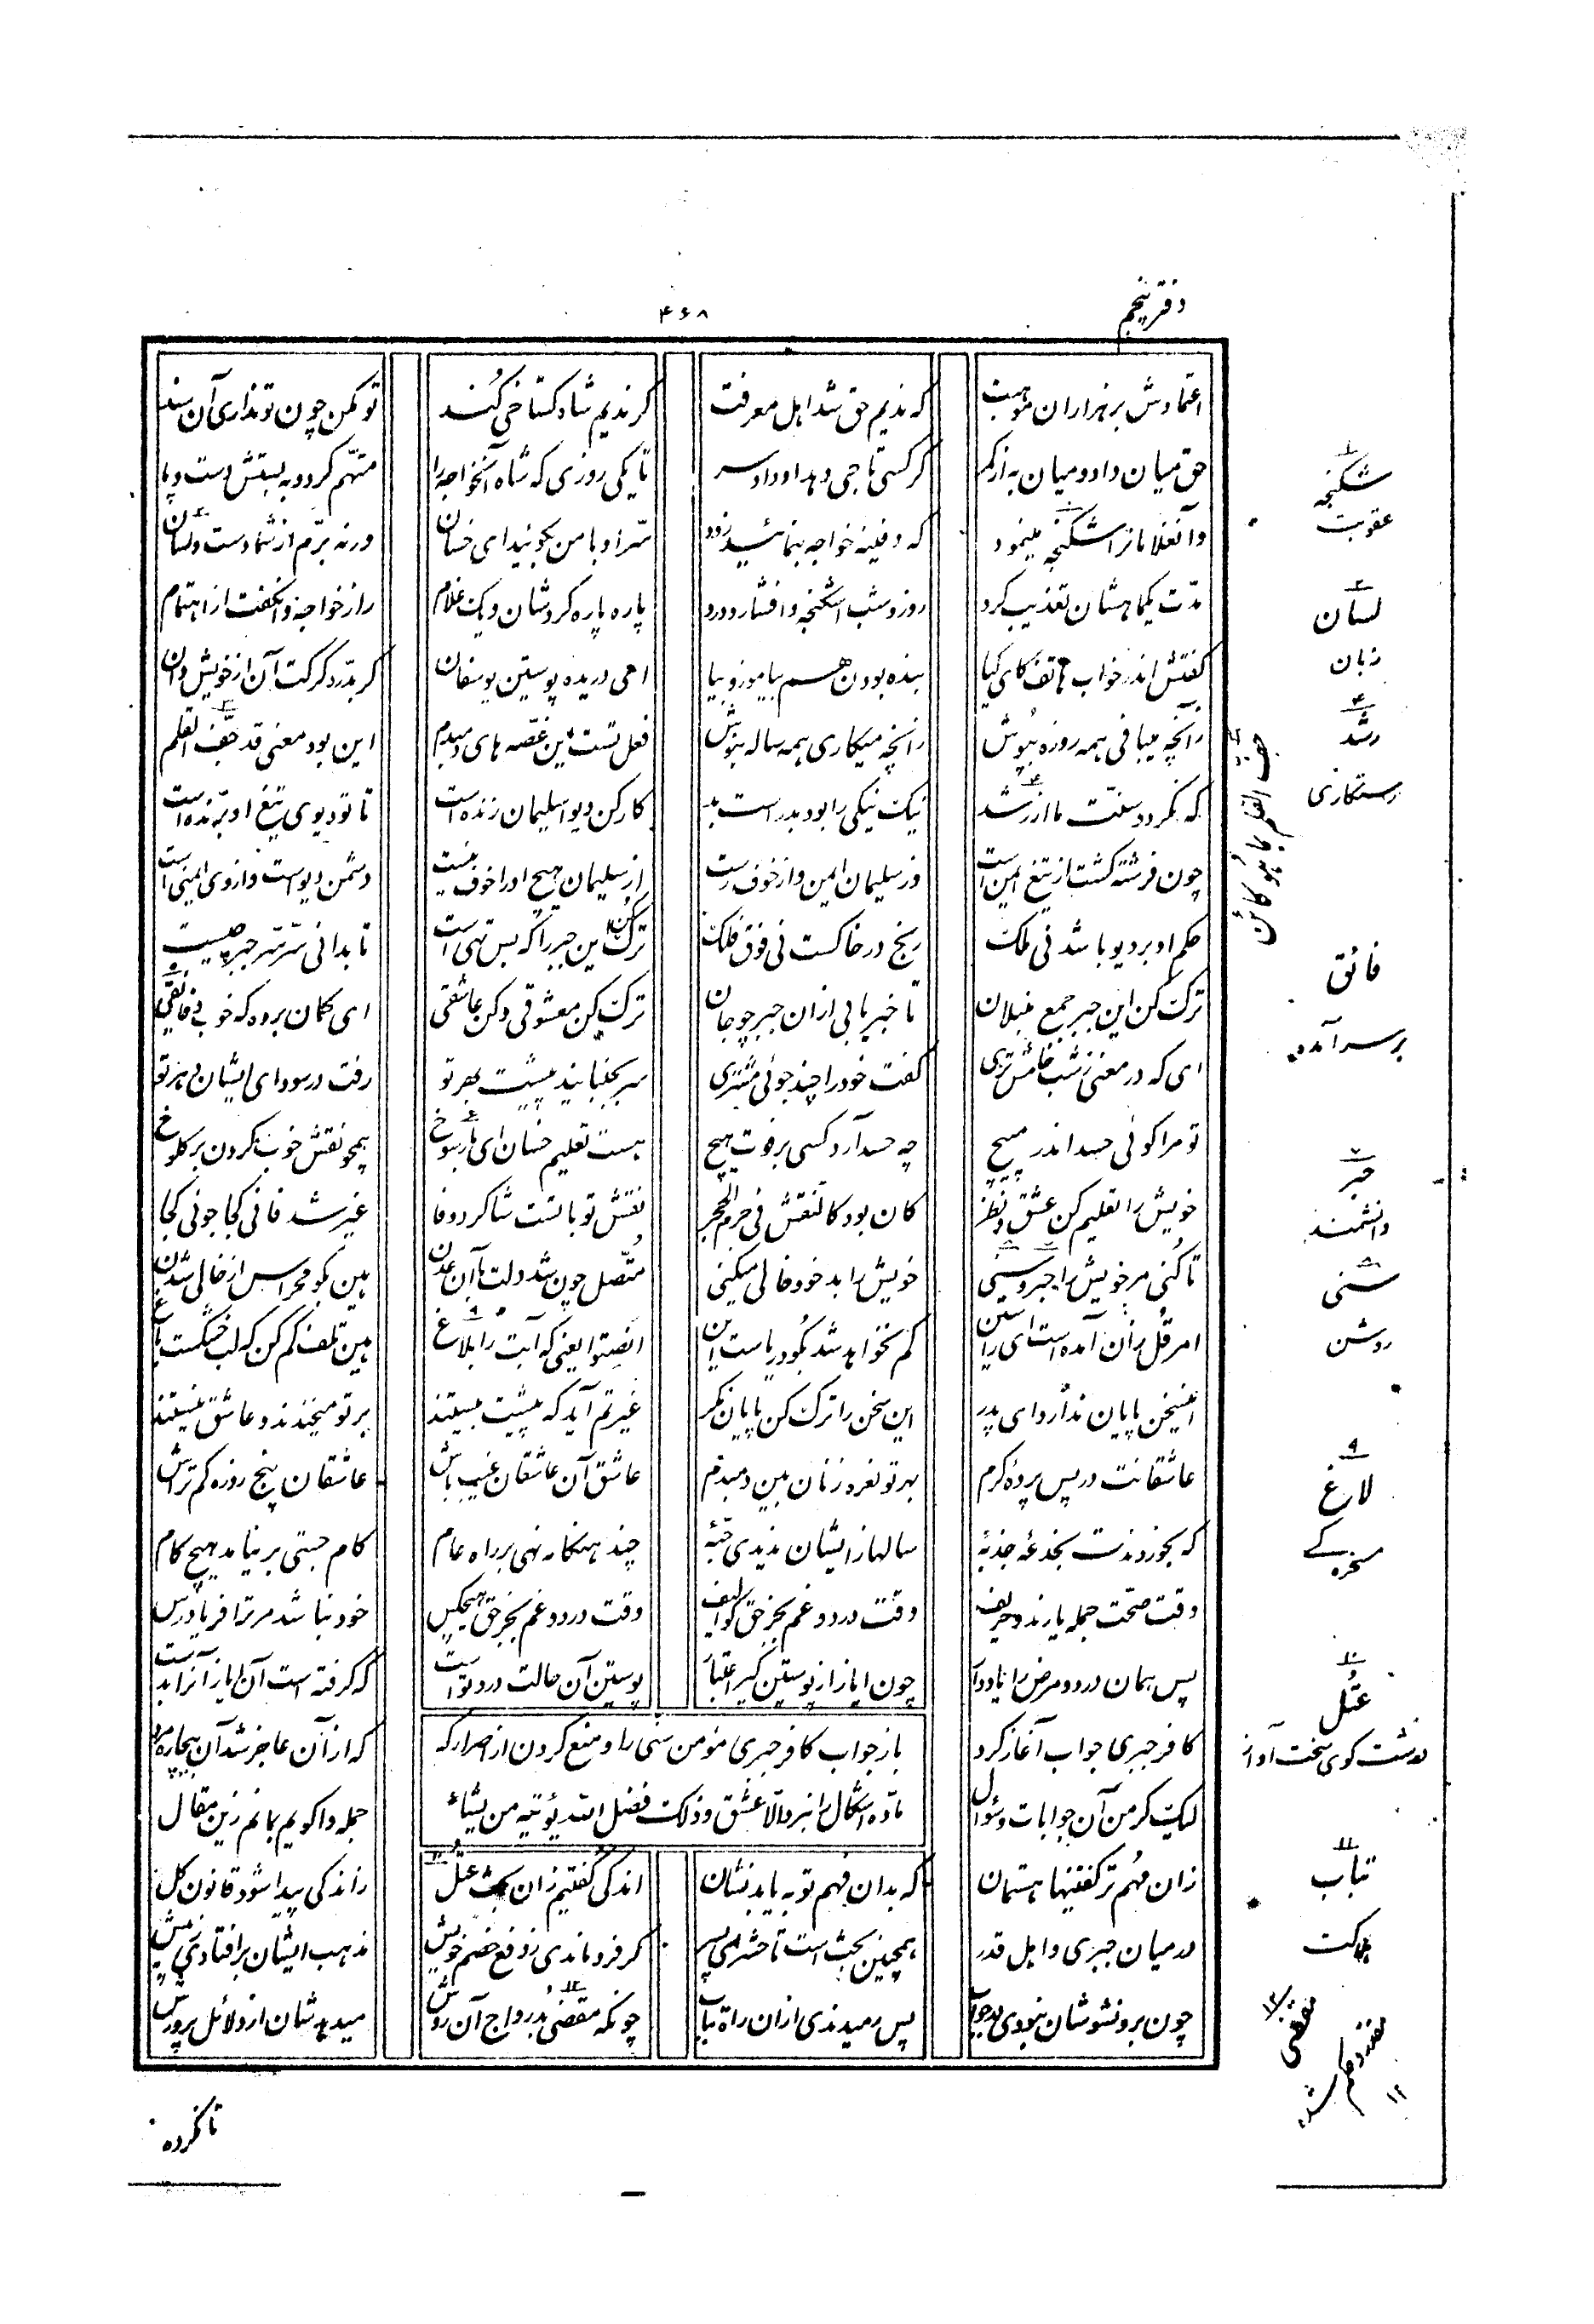 دفتر پنجم
۴۶۸
اعتمادش بر هزاران موهبت که ندیم حق شد اهل معرفت گر ندیم شاه گستاخی کند تو مکن چون تو نداری آن سند
حق میان داد و میان به از کمر گر کسی تاجی دهد او داد سر تا یکی روزی که شاه آنخواجه را متهم کرد و ببستش دست و پا
وانغلامانرا شکنجه مینمود که دفینه خواجه بنمائید زود سر او با من بگوئید ای خسان ورنه برم از شما دست و لسان
مدت یکماهشان تعذیب کرد روز و شب اشکنجه و افشار و درد پاره پاره کردشان و یک غلام راز خواجه وانگفت از اهتمام
گفتش اندر خواب هاتف کای کیا بنده بودن هم بیاموز و بیا ای دریده پوستین یوسفان گر بدرد گرگت آن از خویش دان
زانچه میبافی همه روزه بپوش زانچه میکاری همه ساله بنوش فعل تست این غصه های دمبدم این بود معنی قد جف القلم
که نگردد سنت ما از رشد نیک نیکی را بود بد راست بد کار کن دیو اسلیمان زنده است تا تو دیوی تیغ او برنده است
چون فرشته گشت از تیغ ایمن است وز سلیمان ایمن و از خوف رست از سلیمان هیچ او را خوف نیست دشمن دیو است و از وی ایمنی است
حکم او بر دیو باشد نی ملک رنج در خاکست نی فوق فلک ترک کن این جبر را که بس تهی است تا بدانی سر سر جبر چیست
ترک کن این جبر جمع منبلان تا خبر یابی از ان جبر چو جان ترک کن معشوقی و کن عاشقی ای گمان برده که خوب و فائقی
ای که در معنی ز شب خامش تری گفت خود را چند جوئی مشتری سر بجنبانند پیشت بهر تو رفت در سودای ایشان دهر تو
تو مرا گوئی حسد اندر مپیچ چه حسد آرد کسی بر فوت هیچ هست تعلیم خسان ای هرزه شوخ همچو نقش خوب کردن بر کلوخ
خویش را تعلیم کن عشق و نظر کان بود کالنقش فی جرم الحجر نفس تو با تست شاگرد وفا غیر شد فانی کجا جوئی کجا
تا کنی مر خویش را حبر و سنی خویش را بد خو و خالی میکنی متصل چون شد دلت با آن عدن هین بگو مهراس از خالی شدن
امر قل زان آمدست ای راستین کم نخواهد شد بگو دریاست این انصتوا یعنی که آبت را بلاغ هین تلف کم کن که لب خشکست باغ
اینسخن پایان ندارد ای پدر این سخن را ترک کن پایان نگر غیرتم آید که پیشت بیستند بر تو میخندند و عاشق نیستند
عاشقانت در پس پرده کرم بهر تو نعره زنان بین دمبدم عاشق آن عاشقان غیب باش عاشقان پنج روزه کم تراش
که بخوردندت بخدعه جذبه سالها زایشان ندیدی حبه چند هنگامه نهی بر راه عام گام خستی بر نیامد هیچ کام
وقت صحت جمله یارند و حریف وقت درد و غم بجز حق کو الیف وقت درد و غم بجز حق هیچکس خود نباشد مر ترا فریادرس
پس همان درد و مرض را یاد دار چون ایاز از پوستین گیر اعتبار پوستین آن حالت درد تو است که گرفته است آن ایاز آنرا بدست
باز جواب کافر جبری مؤمن سنی را و منع کردن از اصرار که
ماده اشکال را نبرد الا عشق و ذلک فضل الله یؤتیه من یشاء
کافر جبری جواب آغاز کرد که از آن عاجز شد آن بیچاره مرد
لیک گر من آن جوابات و سؤال جمله واگویم بمانم زین مقال
زان مهم تر گفتنیها هستمان که بدان فهم تو به یابد نشان اندکی گفتیم زان بحث عتل ز اندکی پیدا شود قانون کل
در میان جبری و اهل قدر همچنین بحث است تا حشر ای پسر گر فرو ماندی ز دفع خصم خویش مذهب ایشان بر افتادی ز پیش
چون برونشوشان نبودی در جواب پس رمیدندی از ان راه تباب چونکه مقضی بد رواج آن روش میدهدشان از دلائل پرورش
تا نگردد
۱ شکنجه
عقوبت
۲ لسان
زبان
۳ جف القلم بما هو کائن
۴ رشد
رستگاری
فائق
بر سر آمده
۷ حبر
دانشمند
۸ سنی
روشن
۹ لاغ
مسخره گی
۱۰ عتل
درشت گوی سخت آواز
۱۱ تباب
هلاکت
۱۲ مقضی
حکم شده
۱۲